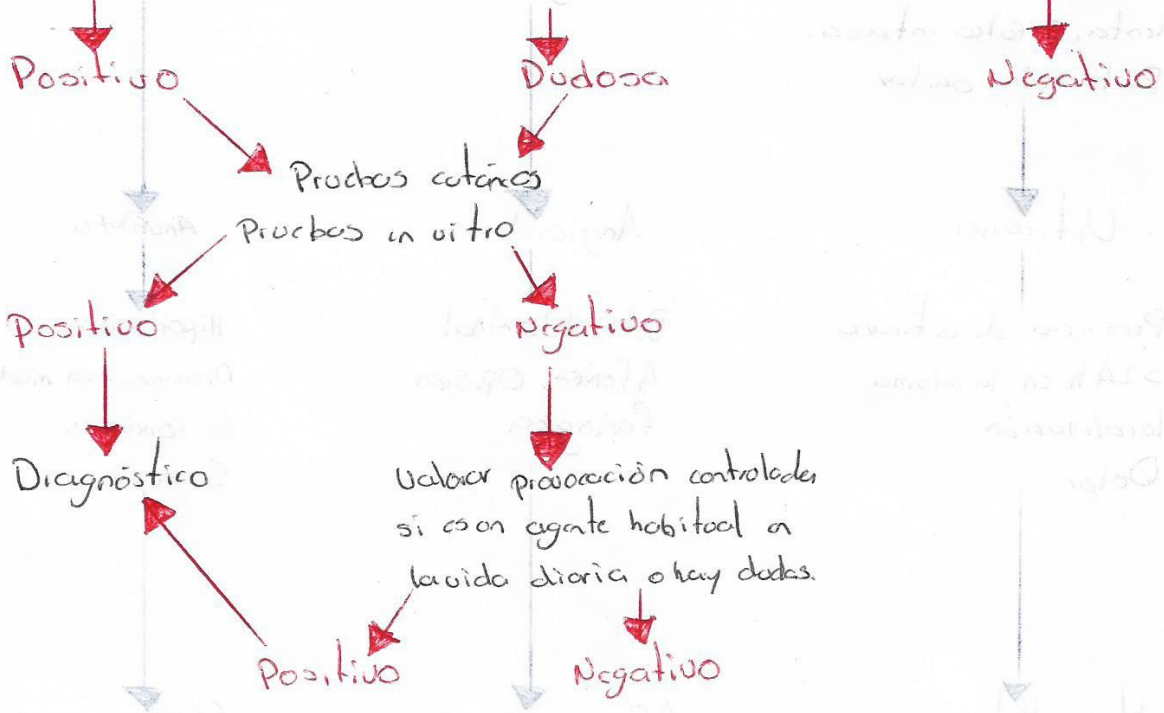 Positivo
Dudosa
Negativo
Pruebas cutáneas
Pruebas in vitro
Positivo
Negativo
Diagnóstico
Valorar provocación controlada
si es un agente habitual en
la vida diaria o hay dudas.
Positivo
Negativo